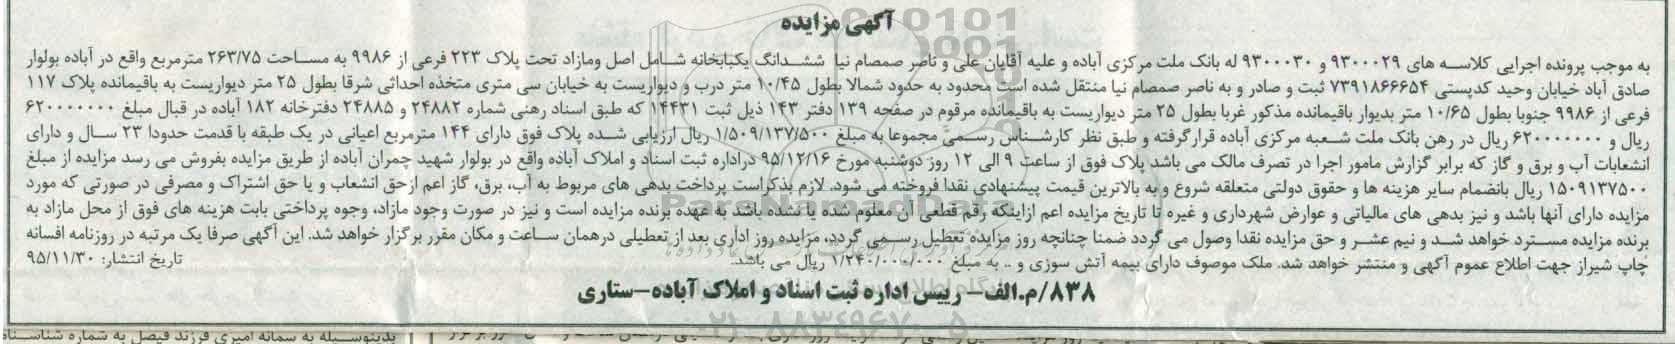 آگهی مزایده
به موجب پرونده اجرایی کلاسه های ۹۳۰۰۰۲۹ و ۹۳۰۰۰۳۰ له بانک ملت مرکزی آباده و علیه آقایان علی و ناصر صمصام نیا ششدانگ یکبابخانه شامل اصل ومازاد تحت پلاک ۲۲۳ فرعی از ۹۹۸۶ به مساحت ۲۶۳/۷۵ مترمربع واقع در آباده بولوار
صادق آباد خیابان وحید کدپستی ۷۳۹۱۸۶۶۶۵۴ ثبت و صادر و به ناصر صمصام نیا منتقل شده است محدود به حدود شمالا بطول ۱۰/۴۵ متر درب و دیواریست به خیابان سی متری متخذه احداثی شرقا بطول ۲۵ متر دیواریست به باقیمانده پلاک ۱۱۷
فرعی از ۹۹۸۶ جنوبا بطول ۱۰/۶۵ متر بدیوار باقیمانده مذکور غربا بطول ۲۵ متر دیواریست به باقیمانده مرقوم در صفحه ۱۳۹ دفتر ۱۴۳ ذیل ثبت ۱۴۴۳۱ که طبق اسناد رهنی شماره ۲۴۸۸۲ و ۲۴۸۸۵ دفترخانه ۱۸۲ آباده در قبال مبلغ ۶۲۰۰۰۰۰۰۰
ریال و ۶۲۰۰۰۰۰۰۰ ریال در رهن بانک ملت شعبه مرکزی آباده قرارگرفته و طبق نظر کارشناس رسمی مجموعا به مبلغ ۱/۵۰۹/۱۳۷/۵۰۰ ریال ارزیابی شده پلاک فوق دارای ۱۴۴ مترمربع اعیانی در یک طبقه با قدمت حدودا ۲۳ سال و دارای
انشعابات آب و برق و گاز که برابر گزارش مامور اجرا در تصرف مالک می باشد پلاک فوق از ساعت ۹ الی ۱۲ روز دوشنبه مورخ ۹۵/۱۲/۱۶ دراداره ثبت اسناد و املاک آباده واقع در بولوار شهید چمران آباده از طریق مزایده بفروش می رسد مزایده از مبلغ
۱۵۰۹۱۳۷۵۰۰ ریال بانضمام سایر هزینه ها و حقوق دولتی متعلقه شروع و به بالاترین قیمت پیشنهادی نقدا فروخته می شود. لازم بذکراست پرداخت بدهی های مربوط به آب، برق، گاز اعم ازحق انشعاب و یا حق اشتراک و مصرفی در صورتی که مورد
مزایده دارای آنها باشد و نیز بدهی های مالیاتی و عوارض شهرداری و غیره تا تاریخ مزایده اعم ازاینکه رقم قطعی آن معلوم شده یا نشده باشد به عهده برنده مزایده است و نیز در صورت وجود مازاد، وجوه پرداختی بابت هزینه های فوق از محل مازاد به
برنده مزایده مسترد خواهد شد و نیم عشر و حق مزایده نقدا وصول می گردد ضمنا چنانچه روز مزایده تعطیل رسمی گردد، مزایده روز اداری بعد از تعطیلی درهمان ساعت و مکان مقرر برگزار خواهد شد. این آگهی صرفا یک مرتبه در روزنامه افسانه
چاپ شیراز جهت اطلاع عموم آگهی و منتشر خواهد شد. ملک موصوف دارای بیمه آتش سوزی و .. به مبلغ ۱/۲۴۰/۰۰۰/۰۰۰ ریال می باشد. تاریخ انتشار: ۹۵/۱۱/۳۰
۸۳۸/م.الف- رییس اداره ثبت اسناد و املاک آباده-ستاری
ParsNamadData
۰۲۱-۸۸۳۴۹۶۷۰-۵
بدینوسیله به سمانه امیری فرزند فیصل به شماره شناسنامه